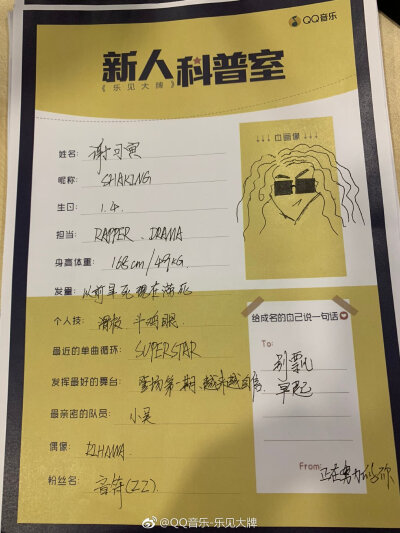 QQ音乐
新人科普室
《乐见大牌》
姓名: 谢可寅
↓↓↓自画像↓↓↓
昵称: SHAKING
生日: 1.4.
担当: RAPPER、DRAMA
身高体重: 168cm/49KG.
发量: 以前旱死现在涝死
个人技: 滑板 斗鸡眼
给成名的自己说一句话
最近的单曲循环: SUPERSTAR
To:
别飘
早起
发挥最好的舞台: 第一期、越来越自信
最亲密的队员: 小吴
偶像: RIHANNA
From: 正在努力的你
粉丝名: (ZZ)
@QQ音乐-乐见大牌